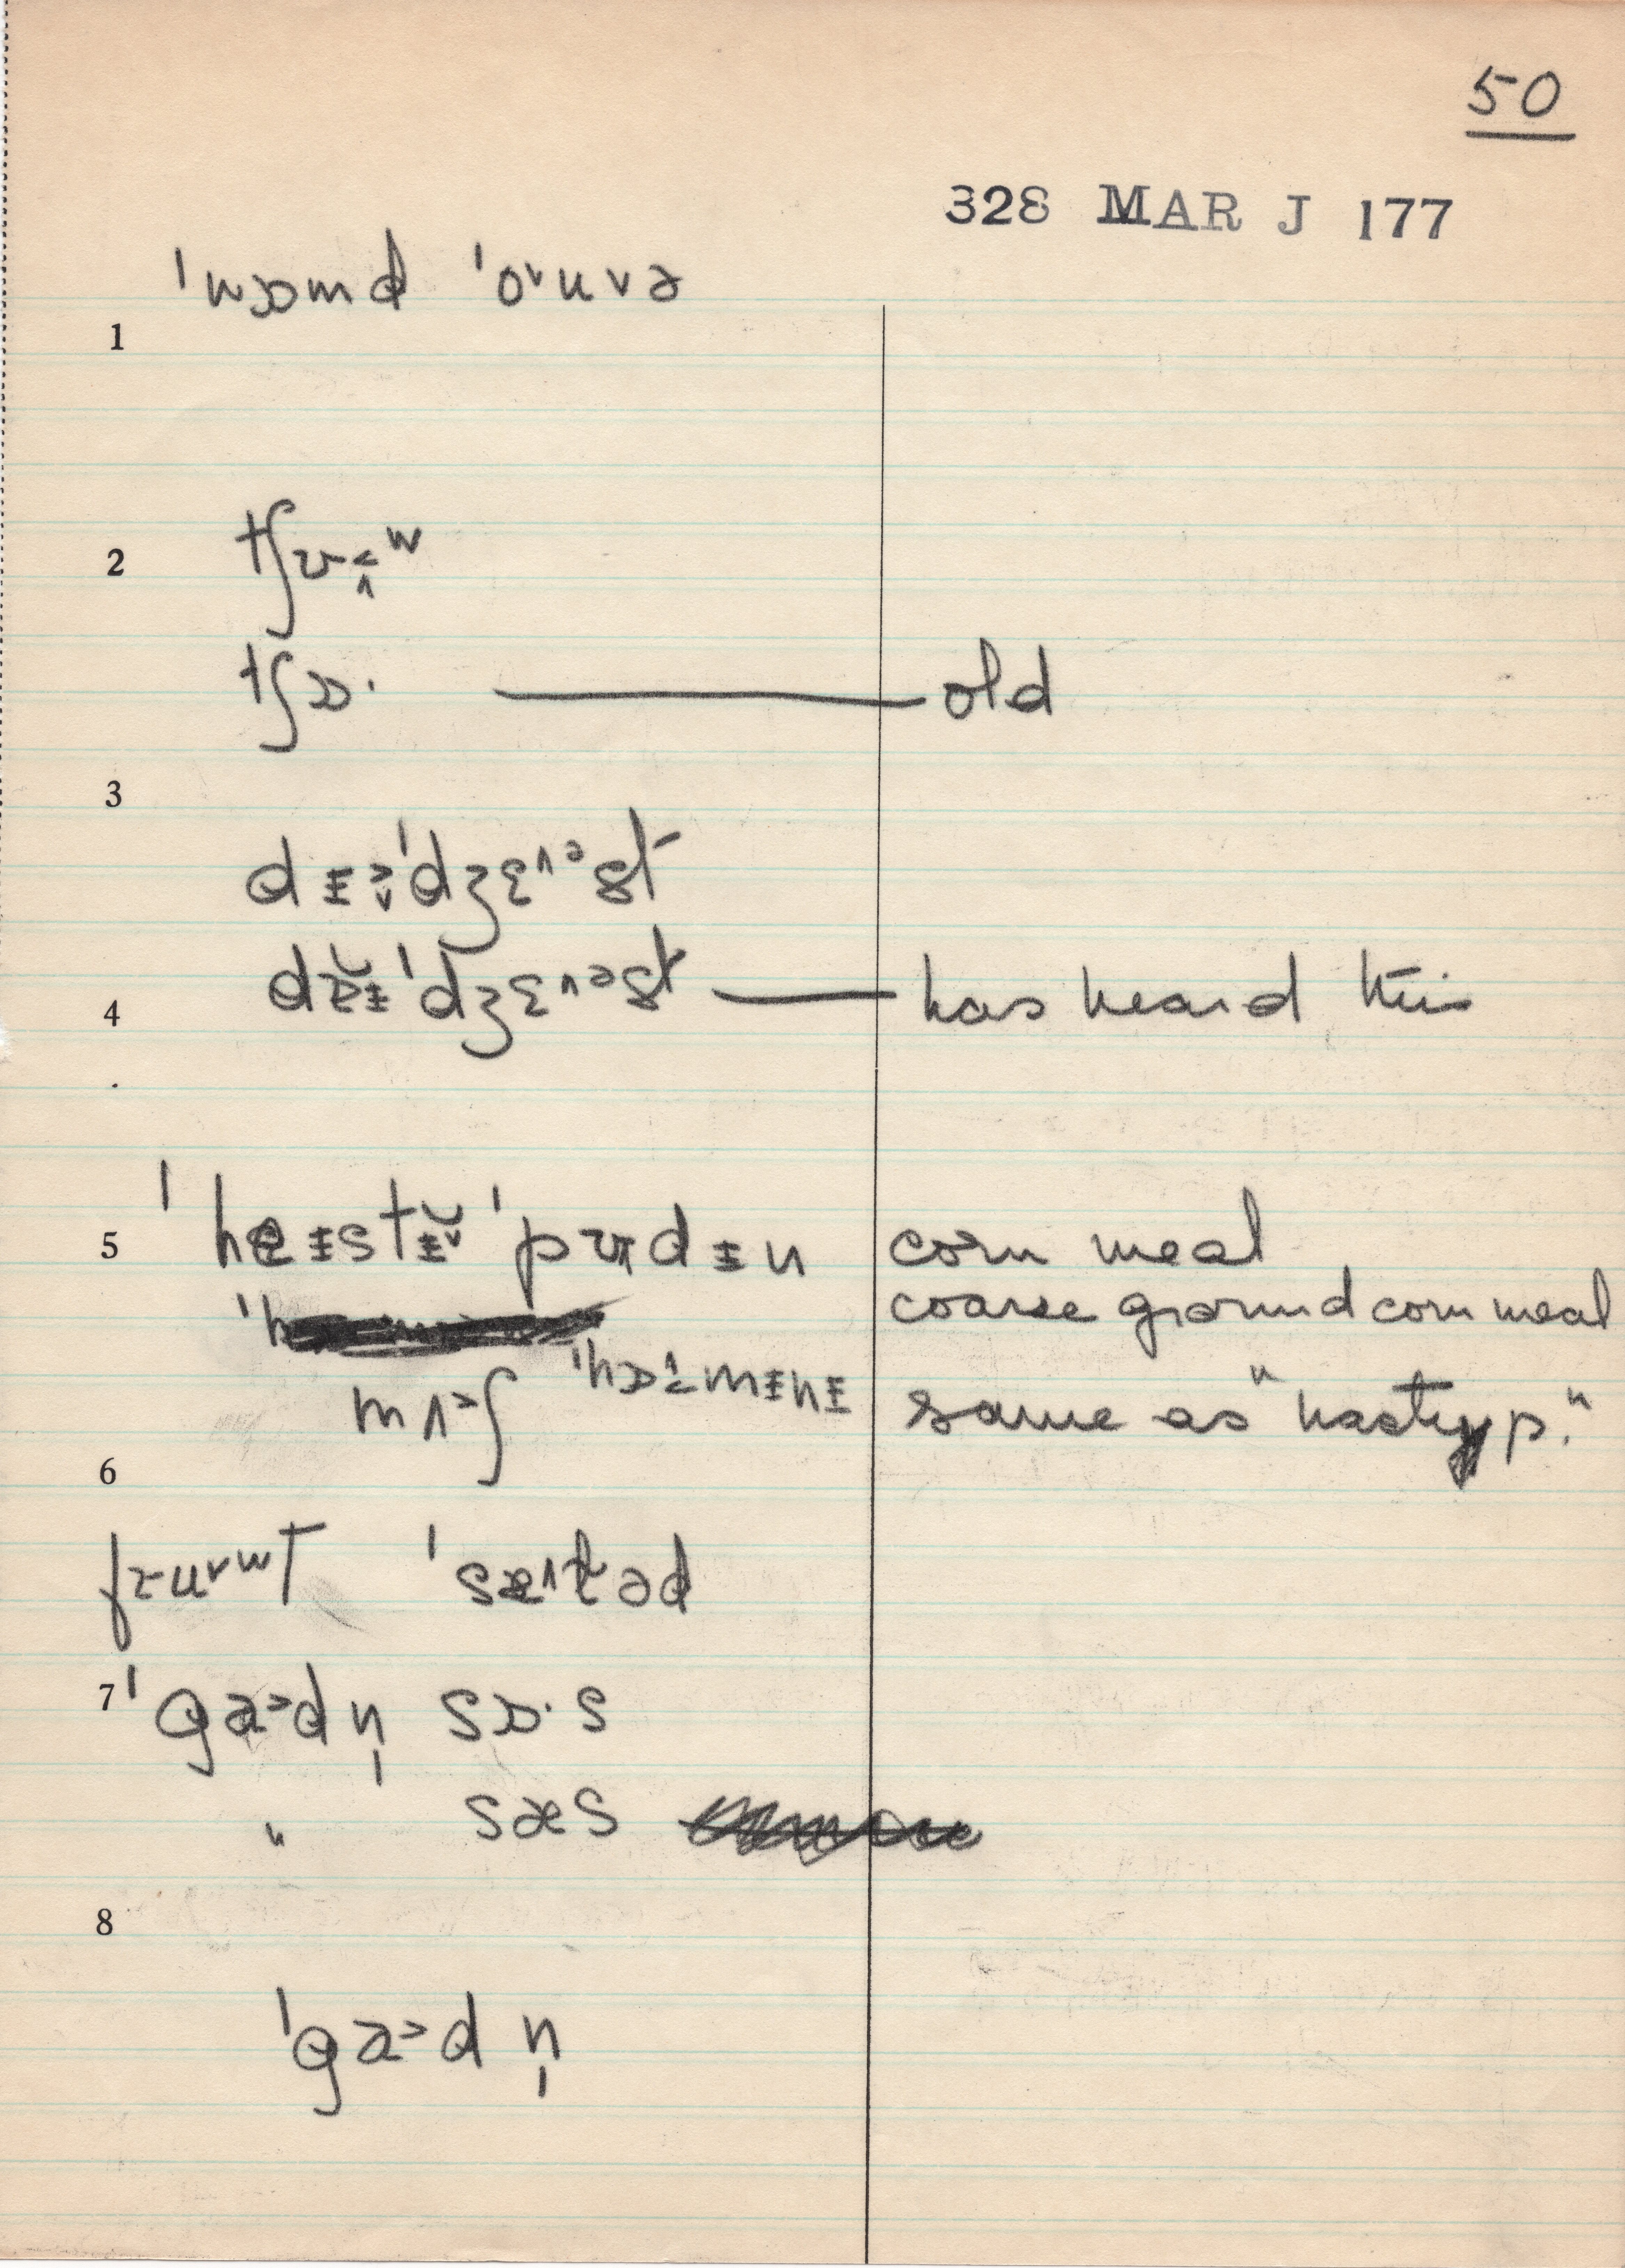 50
328 MAR J 177
ˈwɒmd ˈo˅uvə
1
2
tʃʊ˗˂˄ʷ
tʃɒ· old
3
dɪ˃˅ˈdʒɛ˄ᵊst
4
dɐ̆ɪˈdʒɛ˄ᵊst has heard this
5
ˈheɪstɪ̆˅ ˈpʊdɪn corn meal
coarse ground corn meal
mʌ˃ʃ ˈhɒ˄˂mɪnɪ same as "hasty p."
6
fru˅ʷt ˈsæ˄ləd
7
ˈga˃dn̩ sɒ·s
" sæs
8
ˈga˃dn̩